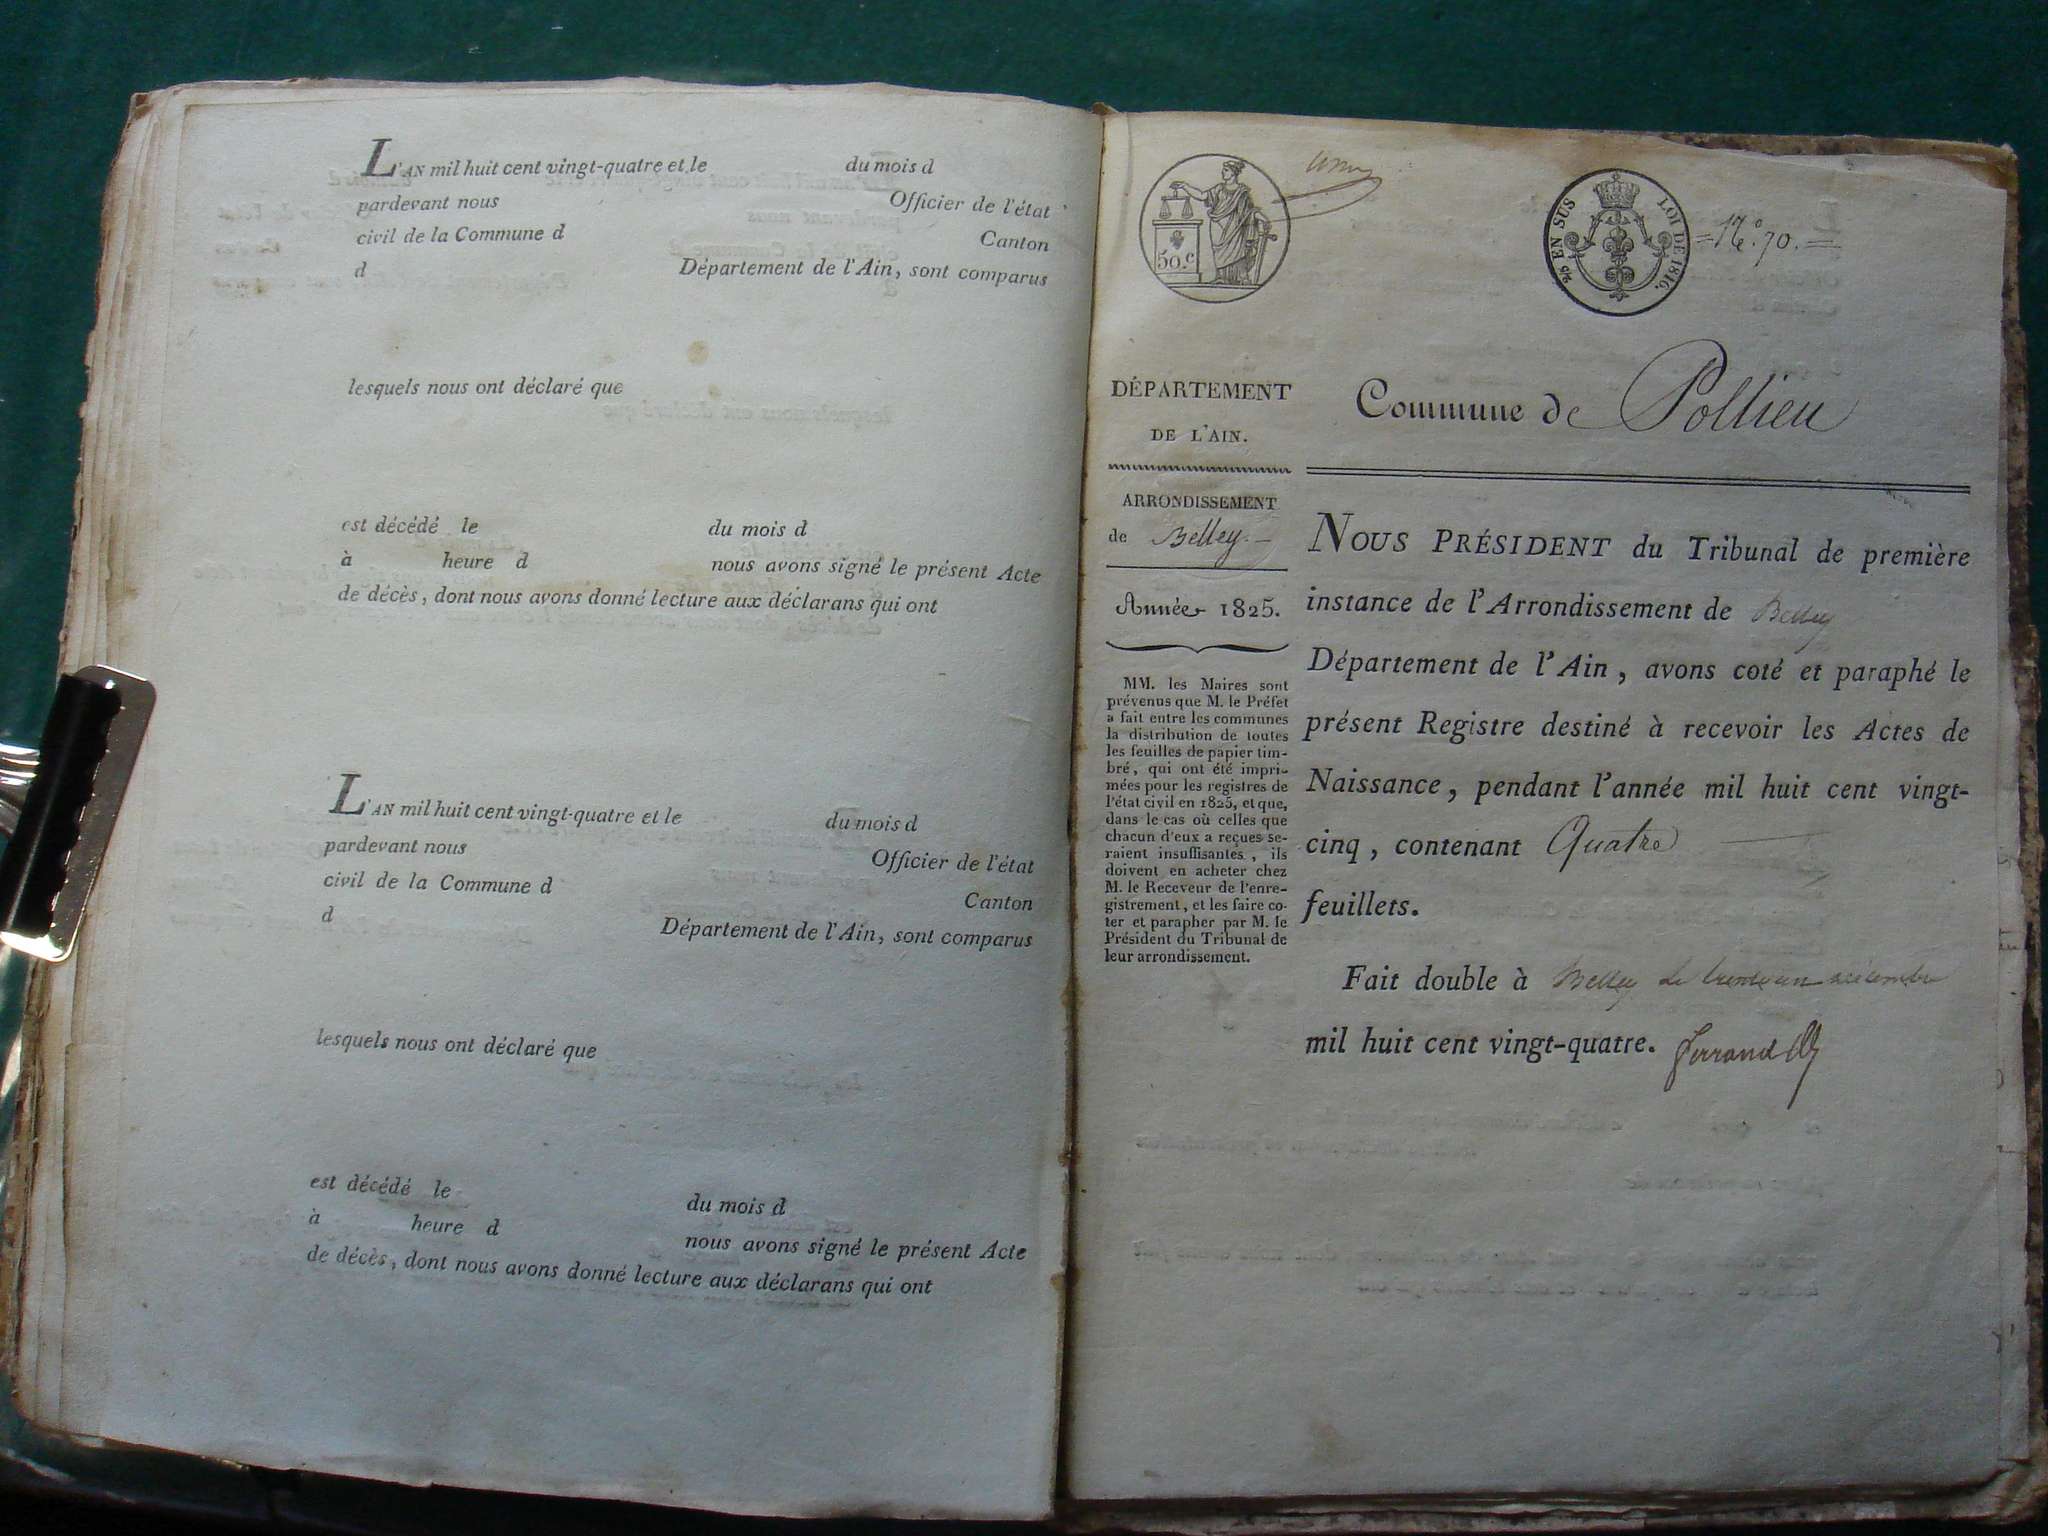 L'AN mil huit cent vingt-quatre et le du mois d
pardevant nous Officier de l'état
civil de la Commune d Canton
d Département de l'Ain, sont comparus
lesquels nous ont déclaré que
est décédé le du mois d
à heure d nous avons signé le présent Acte
de décès, dont nous avons donné lecture aux déclarans qui ont
L'AN mil huit cent vingt-quatre et le du mois d
pardevant nous Officier de l'état
civil de la Commune d Canton
d Département de l'Ain, sont comparus
lesquels nous ont déclaré que
est décédé le du mois d
à heure d nous avons signé le présent Acte
de décès, dont nous avons donné lecture aux déclarans qui ont
50.c
EN SUS LOI DE 1816.
70.
DÉPARTEMENT
DE L'AIN.
ARRONDISSEMENT
de Belley.
Année 1825.
MM. les Maires sont
prévenus que M. le Préfet
a fait entre les communes
la distribution de toutes
les feuilles de papier tim-
bré, qui ont été impri-
mées pour les registres de
l'état civil en 1825, et que,
dans le cas où celles que
chacun d'eux a reçues se-
raient insuffisantes, ils
doivent en acheter chez
M. le Receveur de l'enre-
gistrement, et les faire co-
ter et parapher par M. le
Président du Tribunal de
leur arrondissement.
Commune de Pollieu
NOUS PRÉSIDENT du Tribunal de première
instance de l'Arrondissement de Belley
Département de l'Ain, avons coté et paraphé le
présent Registre destiné à recevoir les Actes de
Naissance, pendant l'année mil huit cent vingt-
cinq, contenant Quatre
feuillets.
Fait double à Belley le trente un décembre
mil huit cent vingt-quatre. Ferrand